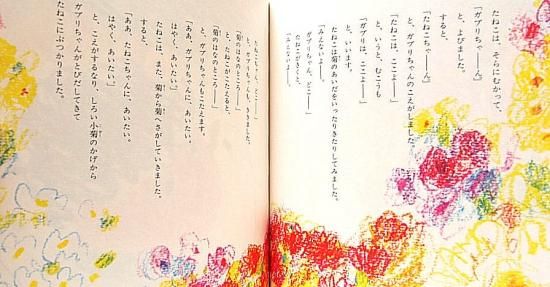 たねこは、そらにむかって、
「ガブリちゃーーん」
と、よびました。
すると、
「たねこちゃーーん」
と、ガブリちゃんのこえがしました。
「たねこは、ここよーー」
と、いうと、むこうも
「ガブリは、ここよーー」
と、いいます。
たねこは菊のあいだをいったりきたりしてみました。
「みえないよーー」
「ガブリちゃん、どこーー」
たねこがきくと、
「みえないよーー
たねこちゃん、どこーー」
と、ガブリちゃんも、ききました。
「菊のはなのところーー」
と、たねこがこたえると、
「菊のはなのところーー」
と、ガブリちゃんもこたえます。
「ああ、ガブリちゃんに、あいたい。
はやく、あいたい。」
たねこは、また、菊から菊へさがしていきました。
すると、
「ああ、たねこちゃんに、あいたい。
はやく、あいたい。」
と、こえがするなり、しろい小菊のかげから
ガブリちゃんがとびだしてきて
たねこにぶつかりました。